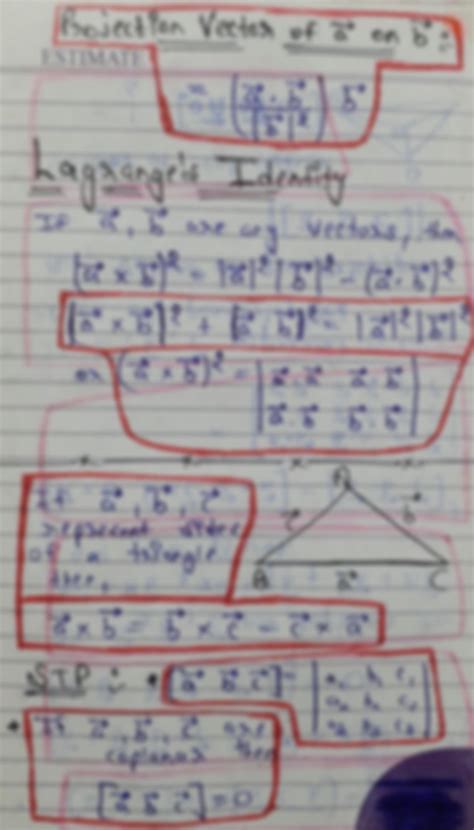 Projection Vector of a⃗ on b⃗ :-
ESTIMATE
= (a⃗ · b⃗ / |b⃗|²) b⃗
Lagrange's Identity
If a⃗, b⃗ are any vectors, then
(a⃗ × b⃗)² = |a⃗|² |b⃗|² - (a⃗ · b⃗)²
(a⃗ × b⃗)² + (a⃗ · b⃗)² = |a⃗|² |b⃗|²
or (a⃗ × b⃗)² = | a⃗·a⃗ a⃗·b⃗ |
| a⃗·b⃗ b⃗·b⃗ |
If a⃗, b⃗, c⃗
represent sides
of a triangle
then,
A
c⃗ b⃗
B a⃗ C
a⃗ × b⃗ = b⃗ × c⃗ = c⃗ × a⃗
STP :- • [a⃗ b⃗ c⃗] = | a₁ b₁ c₁ |
| a₂ b₂ c₂ |
| a₃ b₃ c₃ |
• If a⃗, b⃗, c⃗ are
coplanar then
[a⃗ b⃗ c⃗] = 0